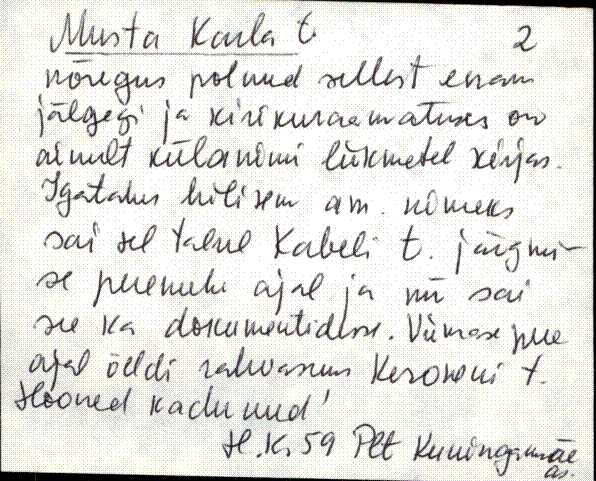 Musta Karla t. 2
nõregus polnud sellest enam
jälgegi ja kirikuraamatuses on
ainult külanimi liikmetel kirjas.
Igatahes hilisem am. nimeks
sai sel talul Kabeli t. järgmi-
se peremehe ajal ja nii sai
see ka dokumentidesse. Viimase pere
ajal öeldi rahvasuus Keroseni t.
Hooned kadunud!
H.K. 59 Plt Kuningamäe
as.